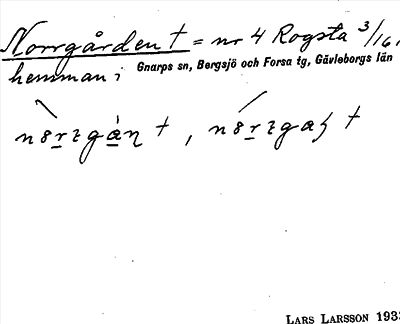 Norrgården † = nr 4 Rogsta 3/16,
hemman i Gnarps sn, Bergsjö och Forsa tg, Gävleborgs län
LARS LARSSON 193